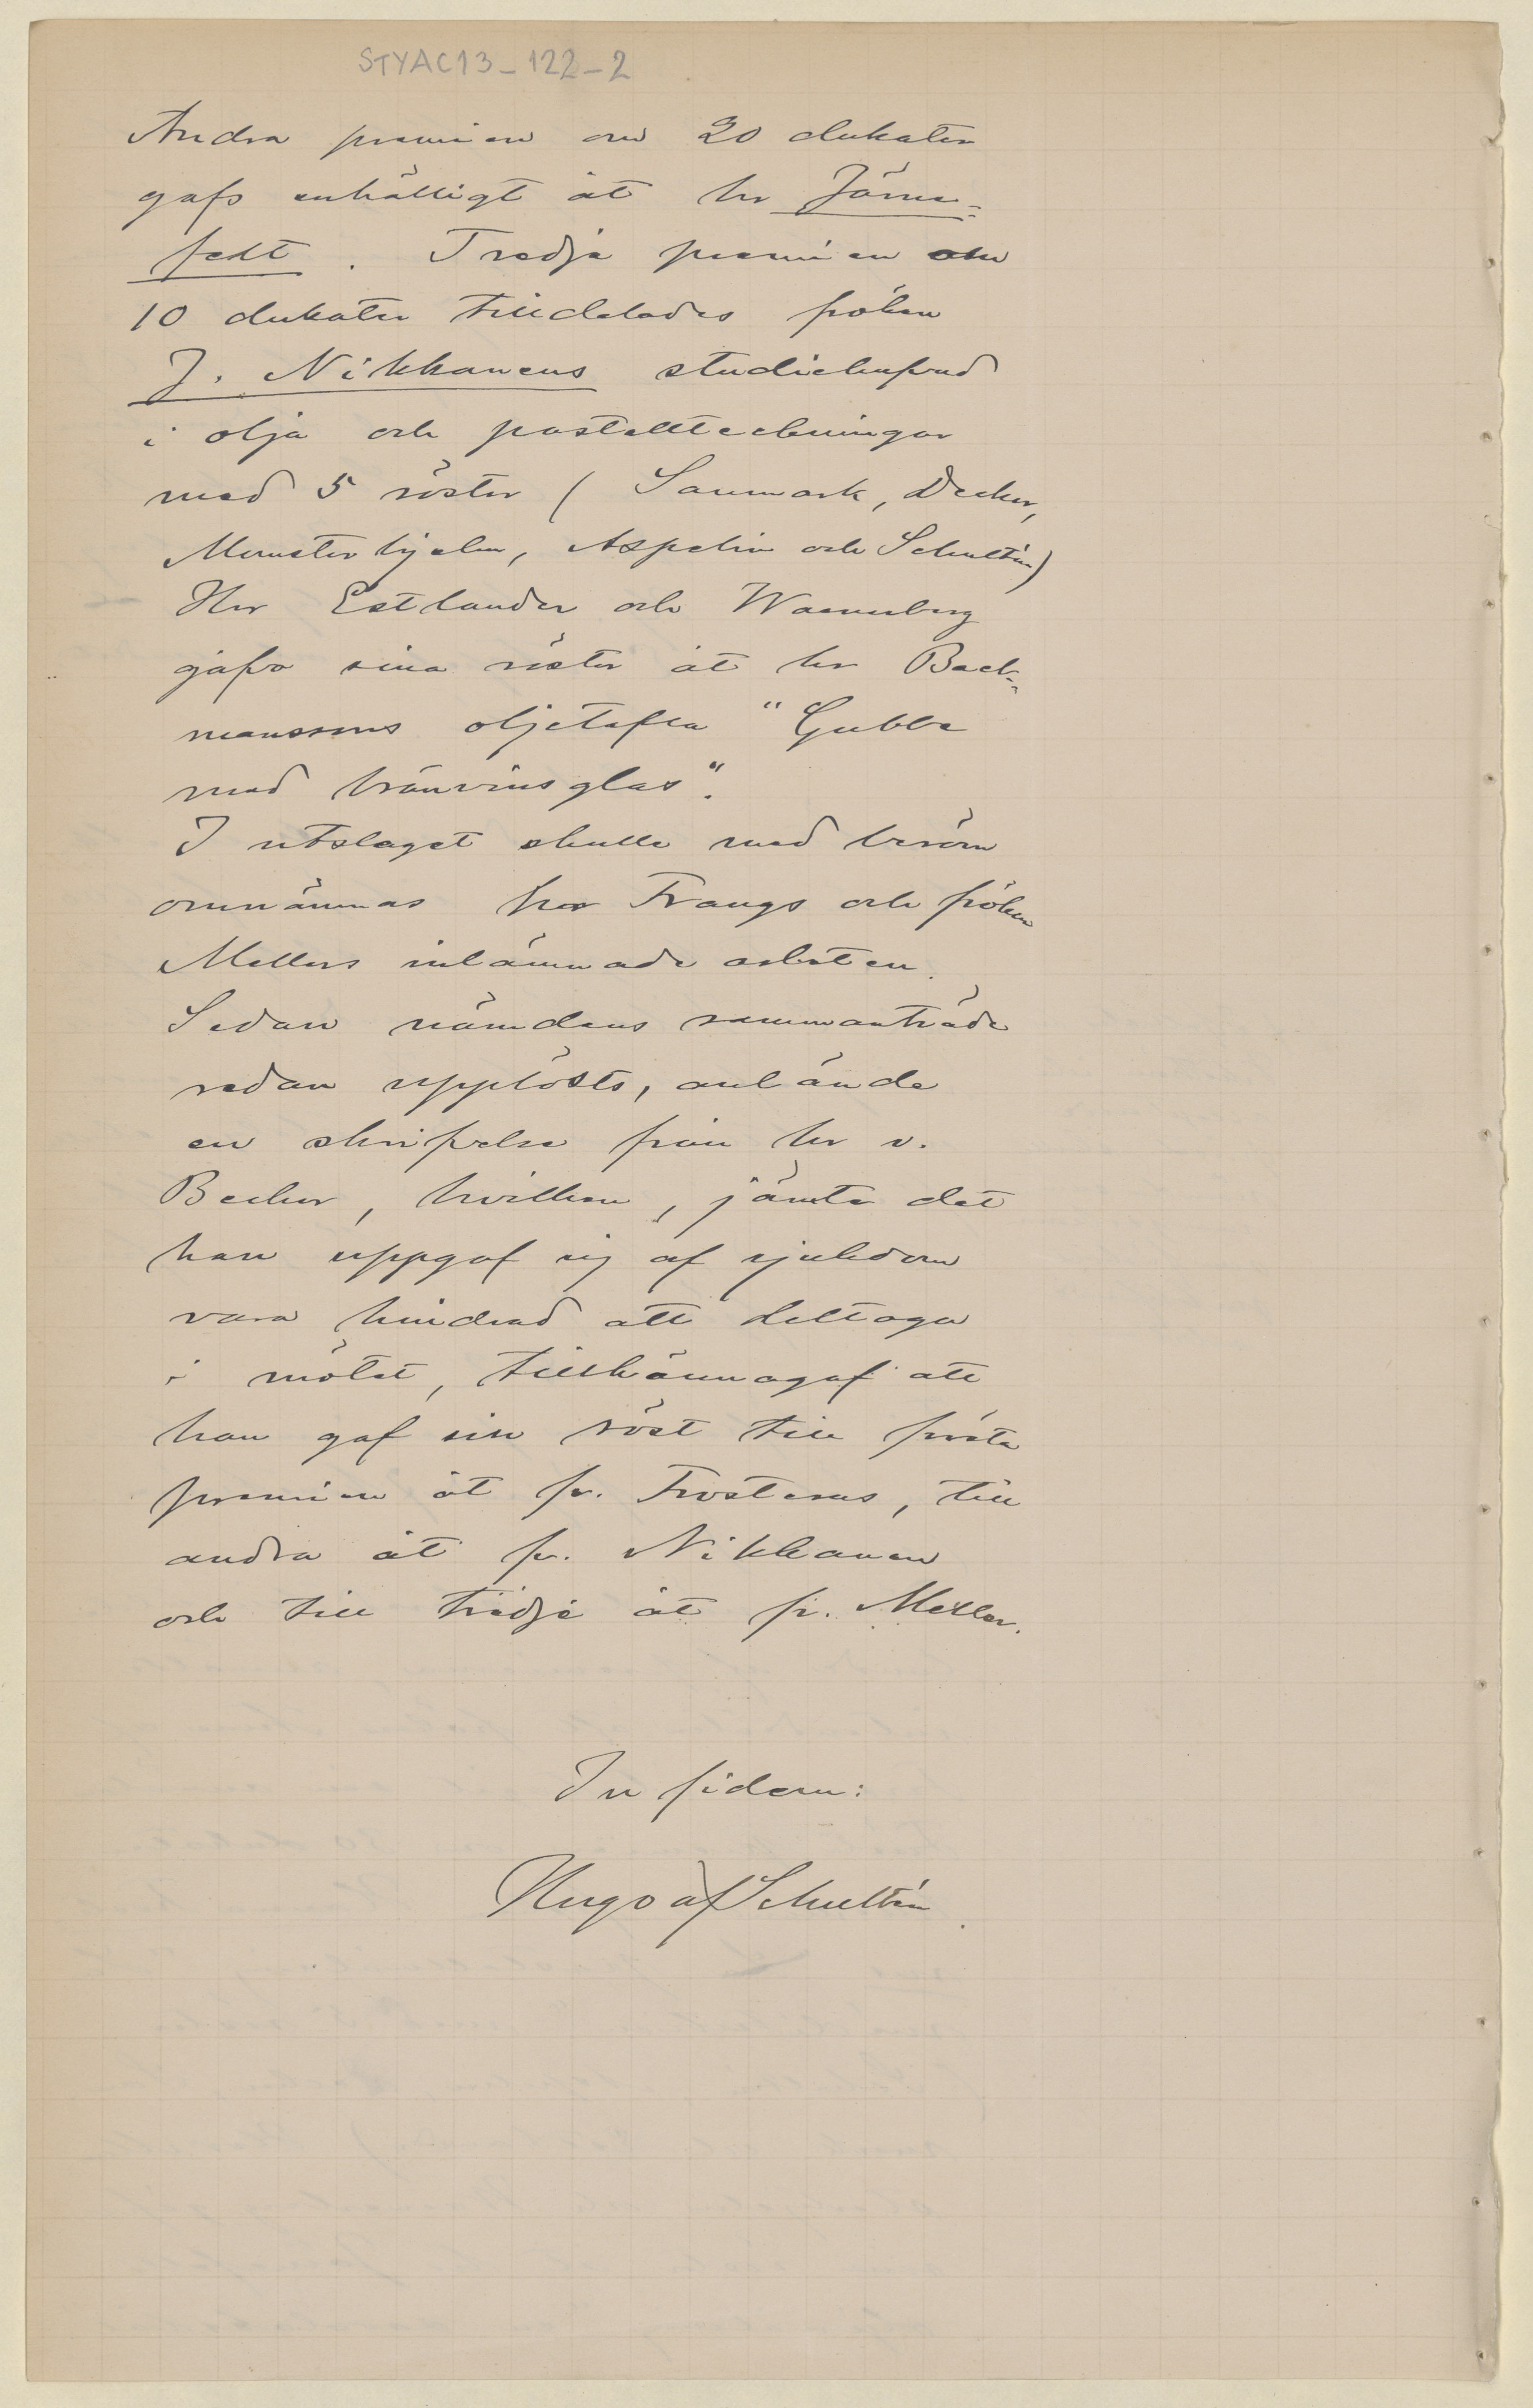 STYAC13-122-2
Andra premien om 20 dukater
gafs enhälligt åt hr Järne-
felt. Tredje premien om
10 dukater tilldelades fröken
J. Nikkanens studiehufvud
i olja och pastellteckningar
med 5 röster (Sanmark, Becker,
Munsterhjelm, Aspelin och Schultén)
Hrr Estlander och Waenerberg
gåfvo sina röster åt hr Back-
manssons oljetafla "Gubbe
med bränvinsglas".
I utslaget skulle med beröm
omnämnas hrr Trangs och fröken
Mellers inlämnade arbeten.
Sedan nämdens sammanträde
redan upplösts, anlände
en skrifvelse från hr v.
Becker, hvilken, jämte det
han uppgaf sig af sjukdom
vara hindrad att deltaga
i mötet, tillkännagaf att
han gaf sin röst till första
premien åt fr. Frosterus, till
andra åt fr. Nikkanen
och till tredje åt fr. Meller.
In fidem:
Hugo af Schultén